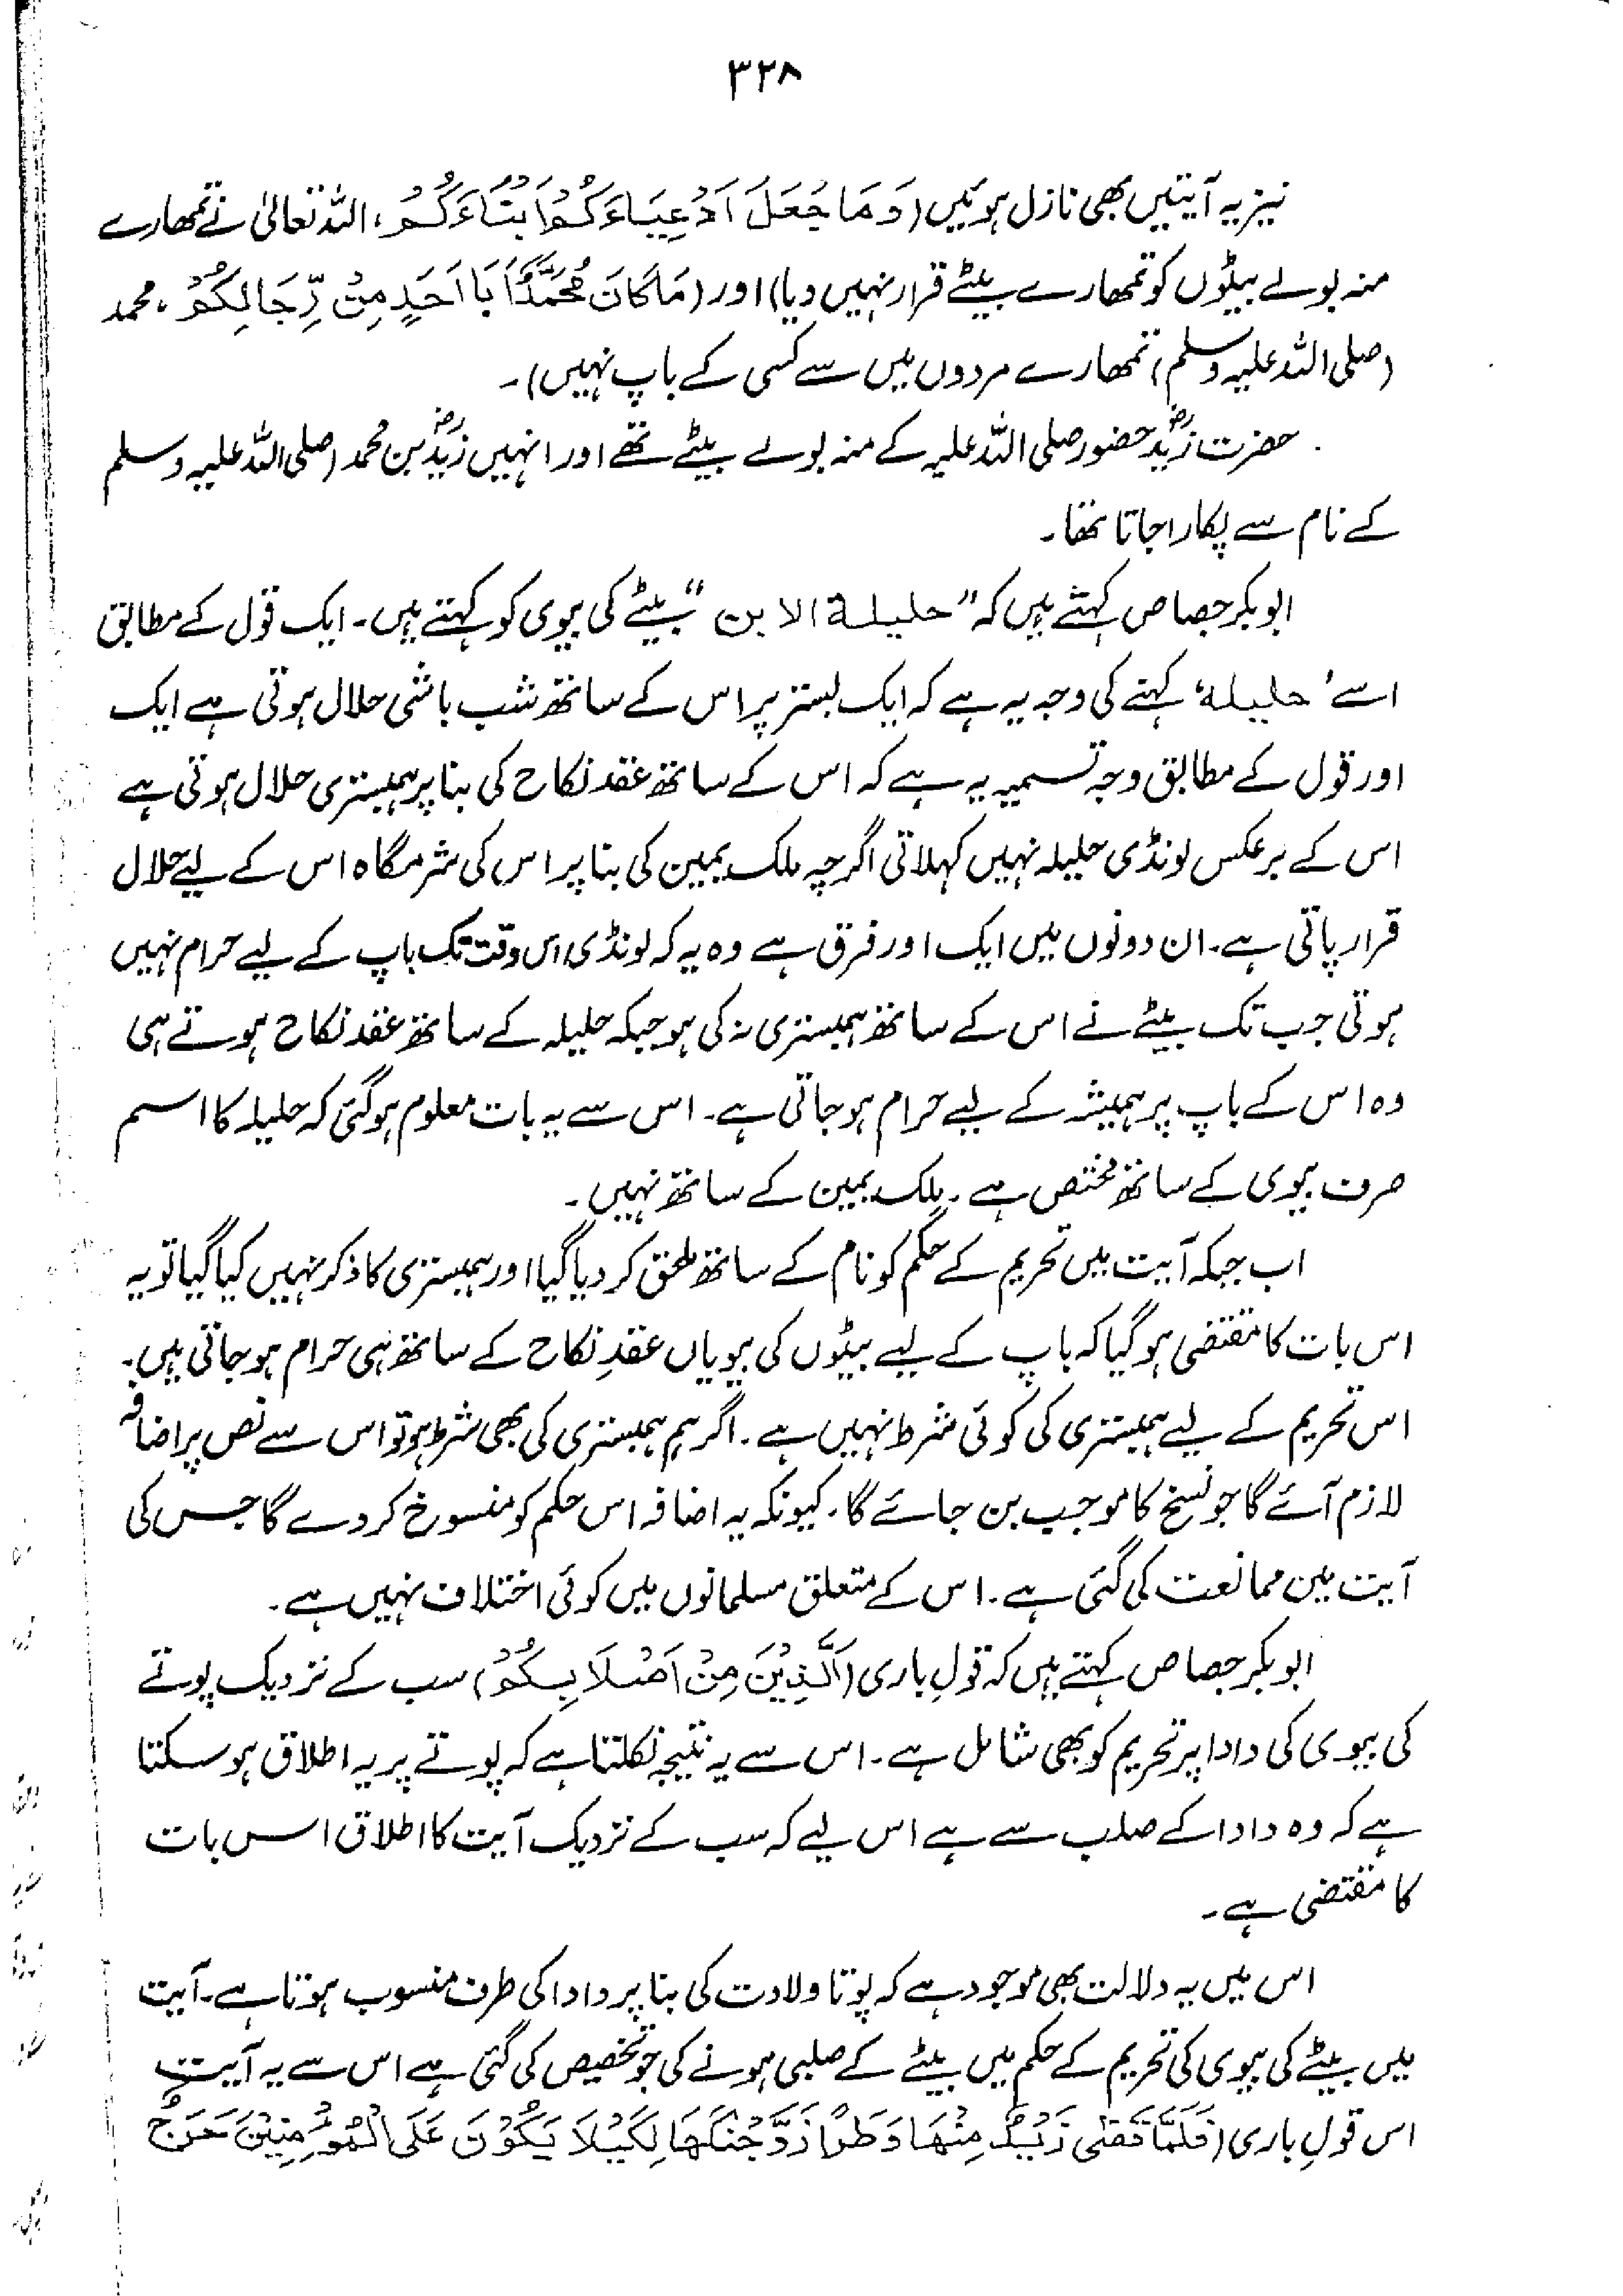 ۳۲۸
نیز یہ آیتیں بھی نازل ہوئیں (وَمَا جَعَلَ اَدْعِیَاءَکُمْ اَبْنَاءَکُمْ، اللہ تعالیٰ نے تمھارے
منہ بولے بیٹوں کو تمھارے بیٹے قرار نہیں دیا) اور (مَا کَانَ مُحَمَّدٌ اَبَا اَحَدٍ مِنْ رِّجَالِکُمْ، محمد
(صلی اللہ علیہ وسلم) تمھارے مردوں میں سے کسی کے باپ نہیں)۔
حضرت زیدؓ حضور صلی اللہ علیہ کے منہ بولے بیٹے تھے اور انہیں زیدؓ بن محمد (صلی اللہ علیہ وسلم
کے نام سے پکارا جاتا تھا۔
ابوبکر جصاص کہتے ہیں کہ "حلیلۃ الابن" بیٹے کی بیوی کو کہتے ہیں۔ ایک قول کے مطابق
اسے 'حلیلہ' کہنے کی وجہ یہ ہے کہ ایک بستر پر اس کے ساتھ شب باشی حلال ہوتی ہے ایک
اور قول کے مطابق وجہ تسمیہ یہ ہے کہ اس کے ساتھ عقد نکاح کی بنا پر ہمبستری حلال ہوتی ہے
اس کے برعکس لونڈی حلیلہ نہیں کہلاتی اگرچہ ملک یمین کی بنا پر اس کی شرمگاہ اس کے لیے حلال
قرار پاتی ہے۔ ان دونوں میں ایک اور فرق ہے وہ یہ کہ لونڈی اس وقت تک باپ کے لیے حرام نہیں
ہوتی جب تک بیٹے نے اس کے ساتھ ہمبستری نہ کی ہو جبکہ حلیلہ کے ساتھ عقد نکاح ہوتے ہی
وہ اس کے باپ پر ہمیشہ کے لیے حرام ہو جاتی ہے۔ اس سے یہ بات معلوم ہو گئی کہ حلیلہ کا اسم
صرف بیوی کے ساتھ مختص ہے۔ ملک یمین کے ساتھ نہیں۔
اب جبکہ آیت میں تحریم کے حکم کو نام کے ساتھ ملحق کر دیا گیا اور ہمبستری کا ذکر نہیں کیا گیا تو یہ
اس بات کا مقتضی ہو گیا کہ باپ کے لیے بیٹوں کی بیویاں عقدِ نکاح کے ساتھ ہی حرام ہو جاتی ہیں۔
اس تحریم کے لیے ہمبستری کی کوئی شرط نہیں ہے۔ اگر ہم ہمبستری کی بھی شرط ہو تو اس سے نص پر اضافہ
لازم آئے گا جو نسخ کا موجب بن جائے گا۔ کیونکہ یہ اضافہ اس حکم کو منسوخ کر دے گا جس کی
آیت میں ممانعت کی گئی ہے۔ اس کے متعلق مسلمانوں میں کوئی اختلاف نہیں ہے۔
ابوبکر جصاص کہتے ہیں کہ قولِ باری (اَلَّذِیْنَ مِنْ اَصْلَابِکُمْ) سب کے نزدیک پوتے
کی بیوی کی دادا پر تحریم کو بھی شامل ہے۔ اس سے یہ نتیجہ نکلتا ہے کہ پوتے پر یہ اطلاق ہو سکتا
ہے کہ وہ دادا کے صلب سے ہے اس لیے کہ سب کے نزدیک آیت کا اطلاق اس بات
کا مقتضی ہے۔
اس میں یہ دلالت بھی موجود ہے کہ پوتا ولادت کی بنا پر دادا کی طرف منسوب ہوتا ہے۔ آیت
میں بیٹے کی بیوی کی تحریم کے حکم میں بیٹے کے صلبی ہونے کی جو تخصیص کی گئی ہے اس سے یہ آیت
اس قولِ باری (فَلَمَّا قَضٰی زَیْدٌ مِنْهَا وَطَرًا زَوَّجْنٰکَهَا لِکَیْلَا یَکُوْنَ عَلَی الْمُؤْمِنِیْنَ حَرَجٌ